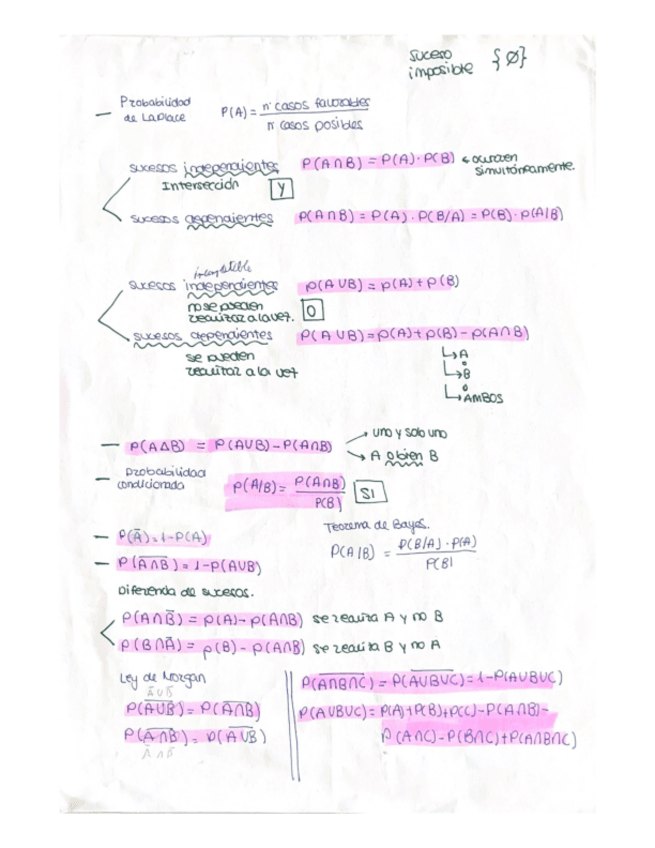 suceso {∅}
imposible
Probabilidad
de Laplace
P(A) = nº casos favorables / nº casos posibles
sucesos independientes P(A∩B) = P(A)·P(B) ← ocurren
simultáneamente.
Intersección Y
sucesos dependientes P(A∩B) = P(A)·P(B/A) = P(B)·P(A|B)
incompatible
sucesos independientes P(A∪B) = p(A)+p(B)
no se pueden
realizar a la vez. O
sucesos dependientes P(A∪B)=p(A)+p(B)-p(A∩B)
se pueden
realizar a la vez
↳A
o
↳B
o
↳AMBOS
— P(A∆B) = P(A∪B)-P(A∩B) → uno y solo uno
→ A o bien B
— probabilidad
condicionada
P(A/B) = P(A∩B) / P(B) SI
— P(Ā)=1-P(A)
Teorema de Bayes.
P(A|B) = P(B/A)·P(A) / P(B)
— P(A̅∩̅B̅)=1-P(A∪B)
Diferencia de sucesos.
P(A∩B̅) = p(A)-p(A∩B) se realiza A y no B
P(B∩Ā) = p(B)-p(A∩B) se realiza B y no A
Ley de Morgan
Ā∪B̅
P(A̅∪̅B̅) = P(A̅∩̅B̅)
P(A̅∩̅B̅) = P(A̅∪̅B̅)
Ā∩B̅
P(A̅∩̅B̅∩̅C̅) = P(A̅∪̅B̅∪̅C̅) = 1-P(A∪B∪C)
P(A∪B∪C)=P(A)+P(B)+p(C)-P(A∩B)-
P(A∩C)-P(B∩C)+P(A∩B∩C)